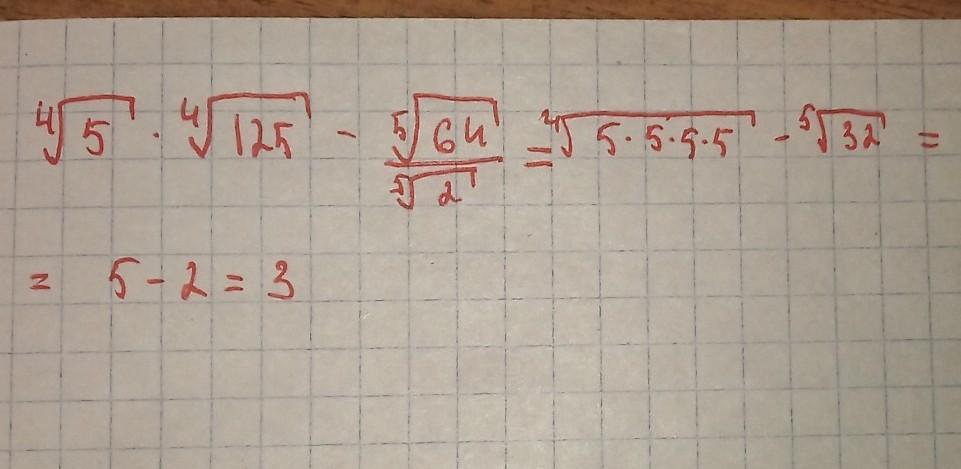 ⁴√5 · ⁴√125 - ⁵√64 / ⁵√2 = ⁴√5·5·5·5 - ⁵√32 =
= 5 - 2 = 3